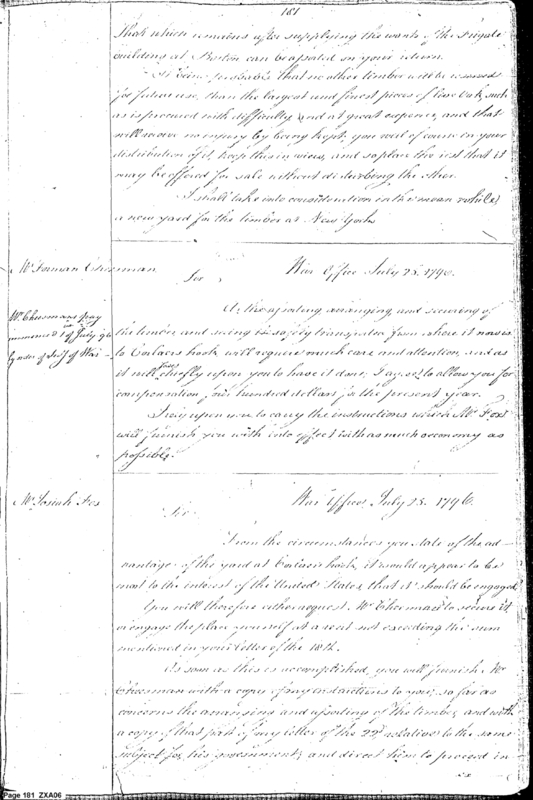 181
That which remains after supplying the wants of the Frigate
building at Boston can be assorted on your return.
It being probable that no other timber will be reserved
for future use, than the largest and finest pieces of live Oak, such
as is procured with difficulty and at great expence, and that
will receive no injury by being kept, you will of course in your
distribution of it, keep this in view, and so place the rest that it
may be offered for sale without disturbing the other.
I shall take into consideration in the mean while
a new yard for the timber at New York.
Mr. Forman Cheesman
War Office July 25. 1796.
Sir,
Mr. Cheesmans pay
commenced 1st of July 96
by order of Secy of War
As the sorting arranging and securing of
the timber, and seeing it safely transported from where it now is
to Corlaers hook, will require much care and attention, and as
it will chiefly upon you to have it done, I agree to allow you for
compensation, five hundred dollars for the present year.
I rely upon you to carry the instructions which Mr. Fox
will furnish you with into effect with as much oeconomy as
possible.
Mr. Josiah Fox
War Office, July 25. 1796.
Sir
From the circumstances you state of the ad-
vantage of the yard at Corlaers hook, it would appear to be
most to the interest of the United States, that it should be engaged.
You will therefore either request Mr. Cheesman to secure it
or engage the place yourself at a rent not exceeding the sum
mentioned in your letter of the 18th.
As soon as this is accomplished, you will furnish Mr.
Cheesman with a copy of my instructions to you, so far as
concerns the arranging and assorting of the timber, and with
a copy of that part of my letter of the 22d relative to the same
subject for his government, and direct him to proceed in
Page 181 ZXA06